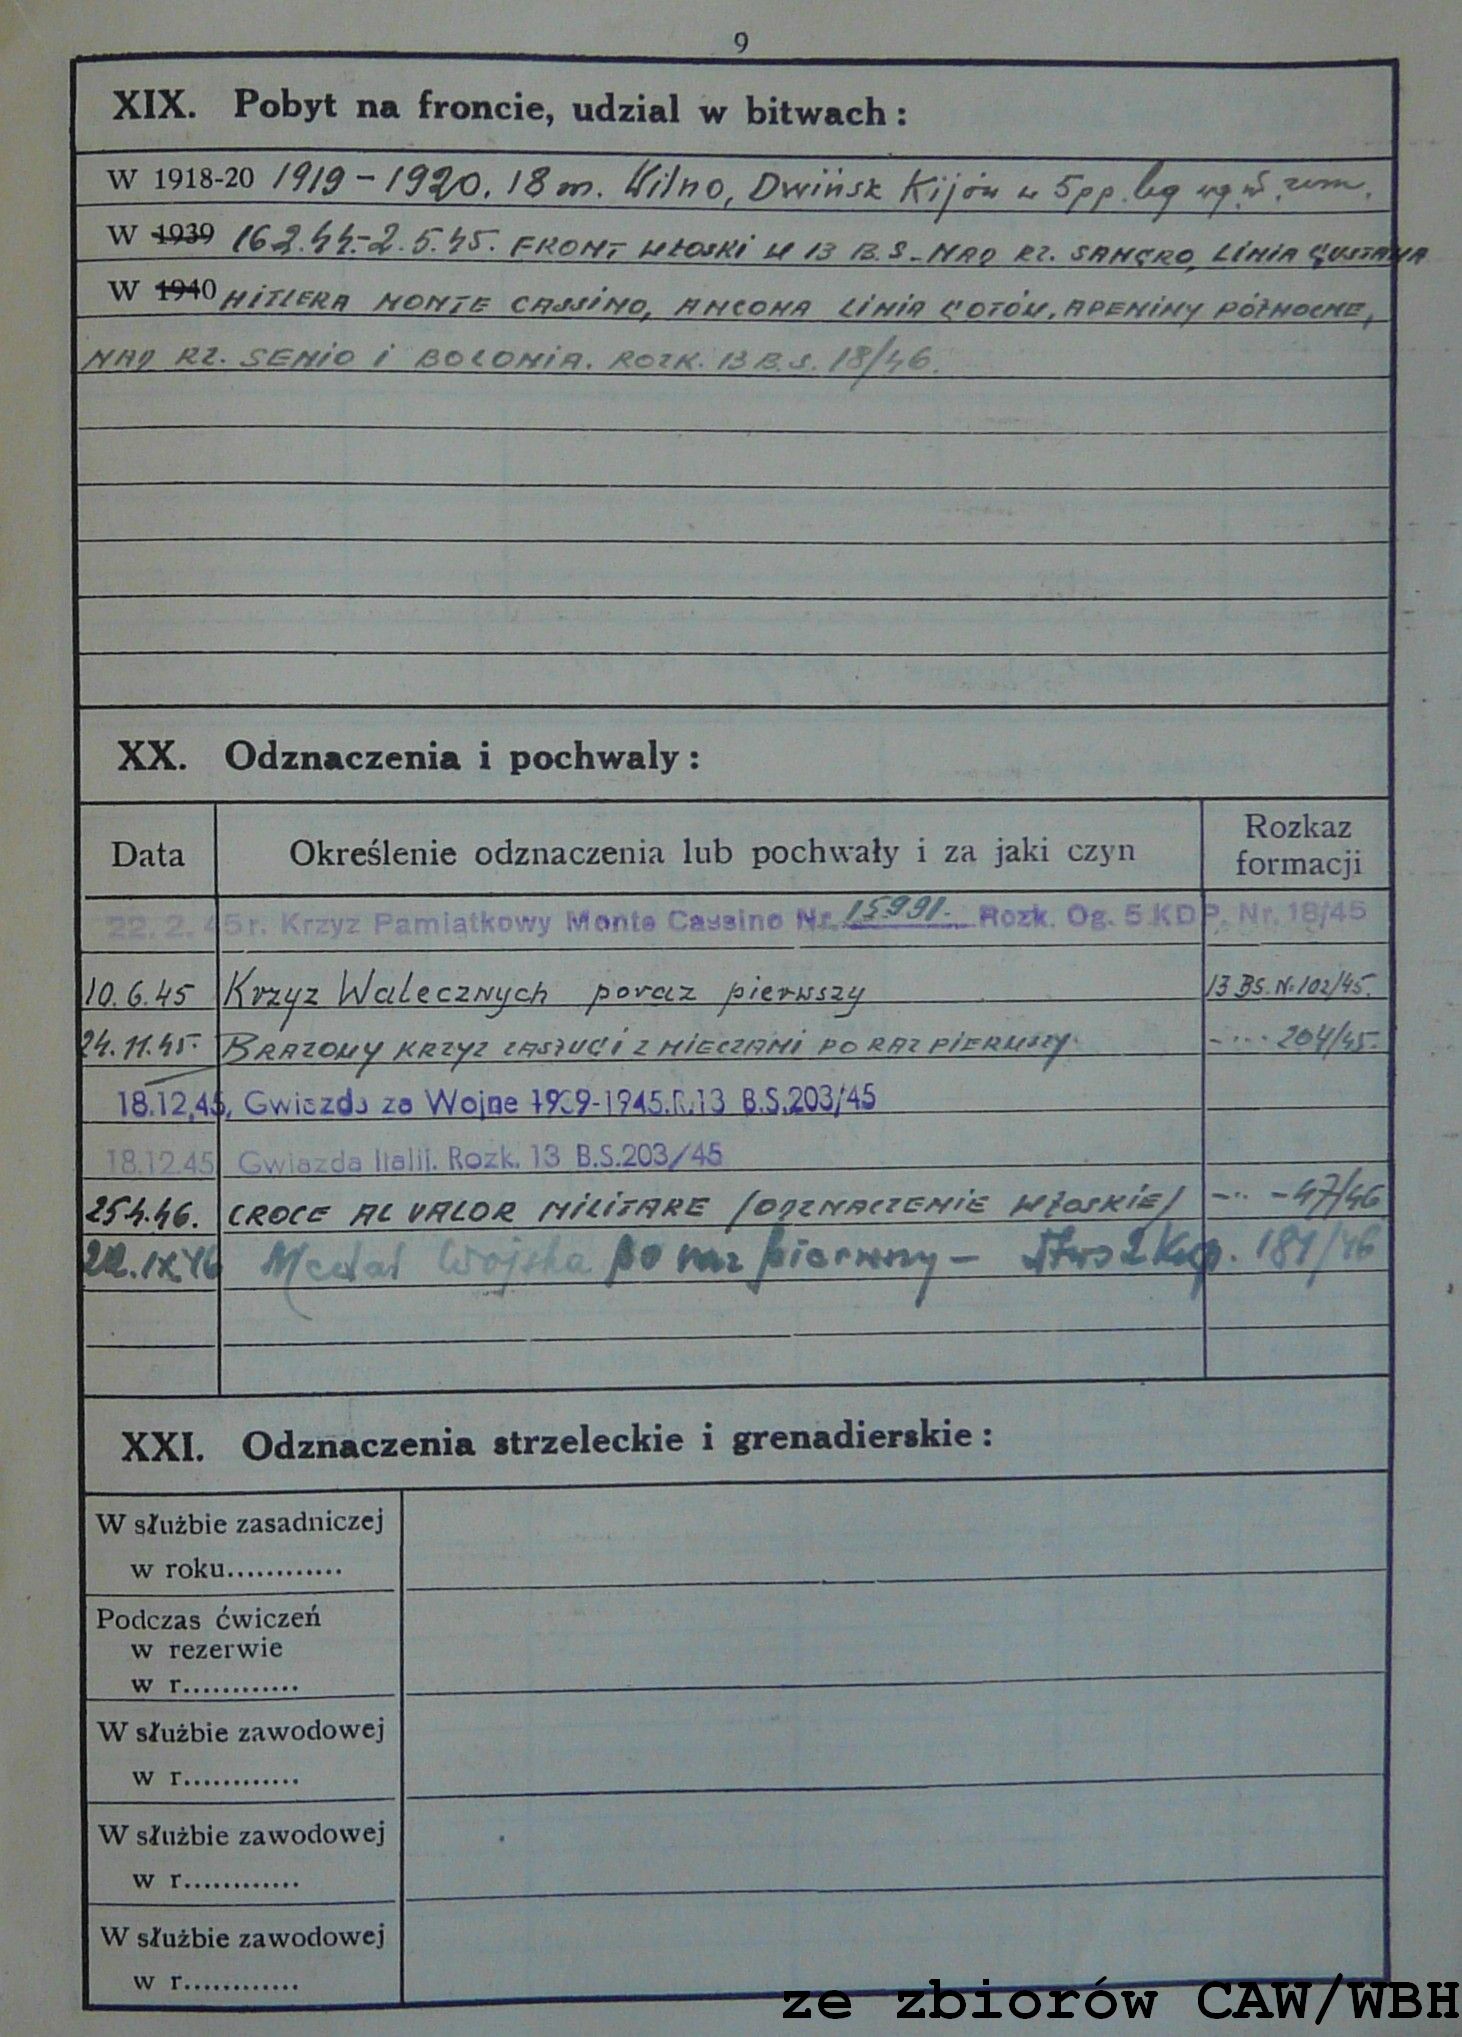 9
XIX. Pobyt na froncie, udzial w bitwach:
W 1918-20 1919-1920. 18 m. Wilno, Dwińsk Kijów w 5pp. leg
W 1939 16.2.44.-2.5.45. FRONT WŁOSKI W 13 B.S. NAD RZ. SANGRO, LINIA GUSTAWA
W 1940 HITLERA MONTE CASSINO, ANCONA LINIA GOTÓW, APENINY PÓŁNOCNE,
NAD RZ. SENIO I BOLONIA. ROZK. 13 B.S. 18/46.
XX. Odznaczenia i pochwaly:
Data Określenie odznaczenia lub pochwały i za jaki czyn Rozkaz formacji
22.2.45r. Krzyz Pamiatkowy Monte Cassino Nr. 15991. Rozk. Og. 5 KDP. Nr. 18/45
10.6.45 Krzyz Walecznych poraz pierwszy 13 BS. N. 102/45.
24.11.45. BRAZOWY KRZYZ ZASŁUGI Z MIECZAMI PO RAZ PIERWSZY. -''- 204/45.
18.12.45, Gwiazda za Wojne 1939-1945.R.13 B.S.203/45
18.12.45 Gwiazda Italii. Rozk. 13 B.S.203/45
25.4.46. CROCE AL VALOR MILITARE /ODZNACZENIE WŁOSKIE/ -''- 47/46
22.IX.46 Medal Wojska po raz pierwszy - 2 Kxp. 181/46
XXI. Odznaczenia strzeleckie i grenadierskie:
W służbie zasadniczej
w roku............
Podczas ćwiczeń
w rezerwie
w r............
W służbie zawodowej
w r............
W służbie zawodowej
w r............
W służbie zawodowej
w r............
ze zbiorów CAW/WBH